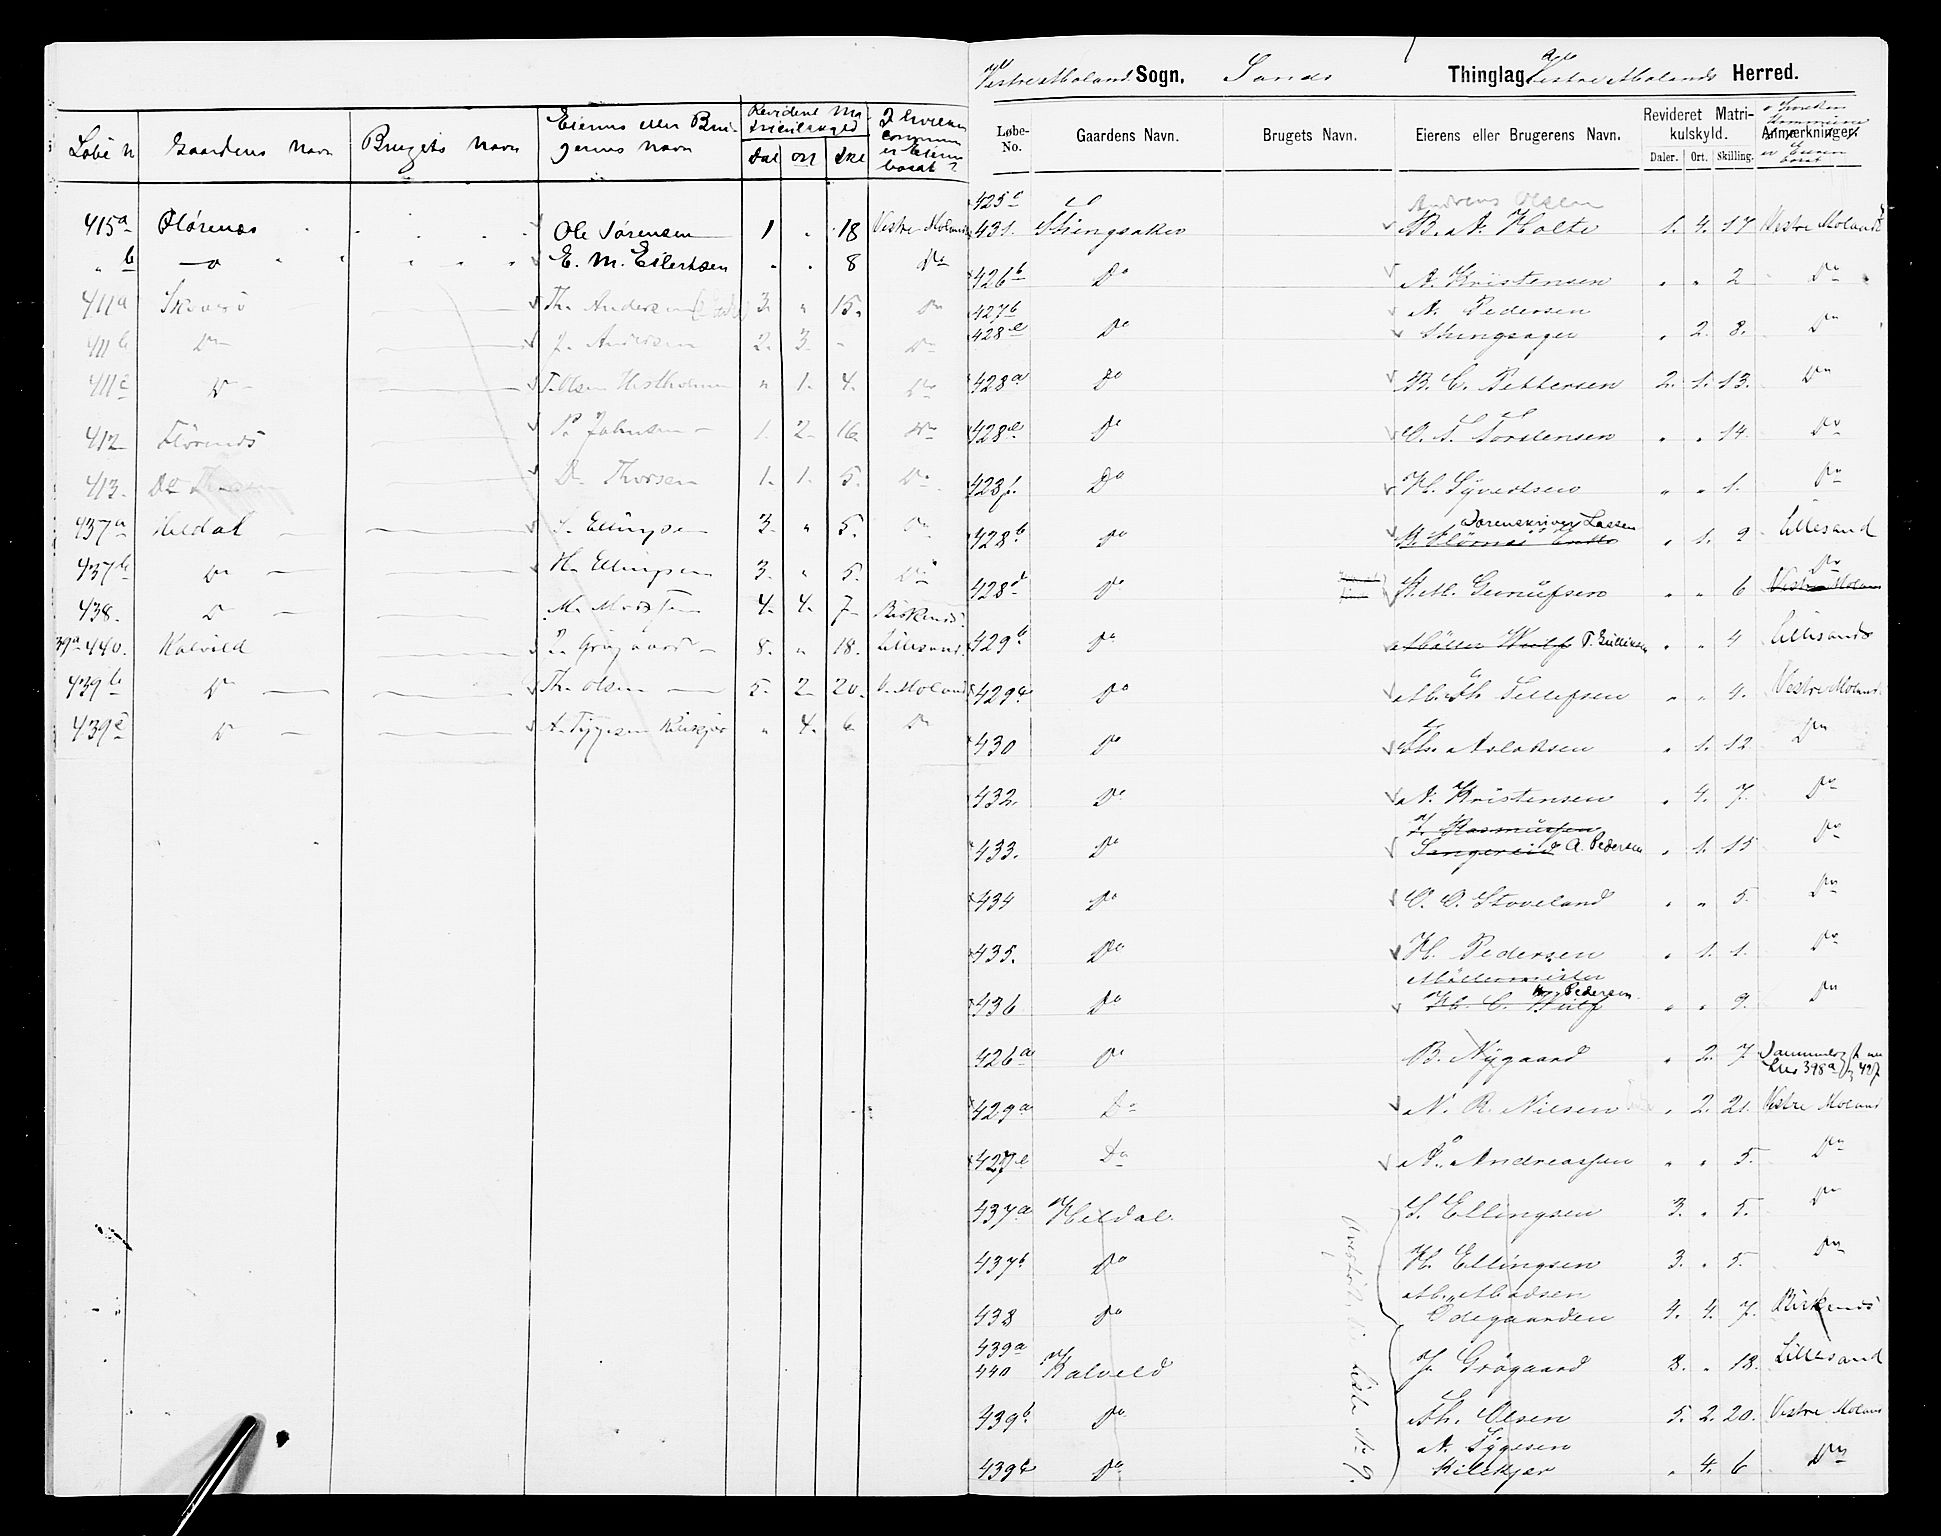 Løbe N
Gaardens Navn
Brugets Navn
Eierens eller Bru-
gerens Navn
Revideret Ma-
trikulskyld
Dal
Ort
Skl
I hvilken
commun
er Eieren
bosat?
415a Flørenes Ole Sørensen 1 " 18 Vestre Moland
" b —o E. M. Eilertsen " " 8 Do
411a Th. Andersen 3. " 15. Do
411b Do J. Andersen 2. 3. - Do
411c Do T. Olsen Vestholmen " 1. 4. Do
412 Flørenes P. Johnsen 1. 2. 16. Do
413. Do D. Thorsen 1. 1. 5. Do
437a Heldal S. Ellingsen 3. " 5. Do
437b Do H. Ellingsen 3. " 5. Do
438. Do M. 4. 4. 7. Birkenæs
39a 440. Kalveld J. Grøgaard 8. " 18. Lillesand.
439b Do Th. Olsen 5. 2. 20. V. Moland
439c Do A. Tygesen Kilekjær " 4. 6 Do
Vestre Moland Sogn, Sands Thinglag Vestre Molands Herred.
Løbe-
No.
Gaardens Navn.
Brugets Navn.
Eierens eller Brugerens Navn.
Revideret Matri-
kulskyld.
Daler. Ort. Skilling.
Anmærkninger.
I hvilken
Kommune
er Eieren
bosat
425c Andreas Olsen
431. Stiengsaker B. A. Holte 1. 4. 17 Vestre Moland
426b Do A. Kristensen " " 2 Do
427b A. Pedersen
428c Do Stiengsager " 2. 8. Do
428a Do B. C. Pettersen 2. 1. 13. Do
428e Do C. T. Torstensen " " 14. Do
428f. Do H. Syvertsen " " 1. Do
Sorenskriver Lassen
428b Do " 1. 9 Lillesand
428d Do St. M. Gunufsen " " 6 Do
Vestre Moland
429b Do Møller Wulf T. Gulliksen " " 4 Lillesand
429c Do M. Th. Tellefsen " " 4. Vestre Moland
430 Do Th. Aslaksen " 1. 12 Do
432. Do A. Kristensen " 4. 7. Do
J. Rasmussen
433. Do A. Pedersen " 1. 15 Do
434 Do O. O. Stoveland " " 5. Do
435. Do H. Pedersen " 1. 1. Do
Møllermester
Pedersen
436 Do H. C. Wulf " " 9. Do
426a Do B. Nygaard " 2. 7
398a
427
429a Do N. R. Nilsen " 2. 21. Vestre Moland
427c Do A. Andreassen " " 5. Do
437a Heldal. S. Ellingsen 3. " 5. Do
437b Do H. Ellingsen 3. " 5. Do
M. Madsen
438 Do Ødegaarden 4. 4. 7. Birkenæs
439a
440 Kalveld J. Grøgaard 8. " 18. Lillesand
439b Do Th. Olsen 5. 2. 20. Vestre Moland
A. Tygesen
439c Do Kilekjær " 4. 6 Do
Liste No 9.